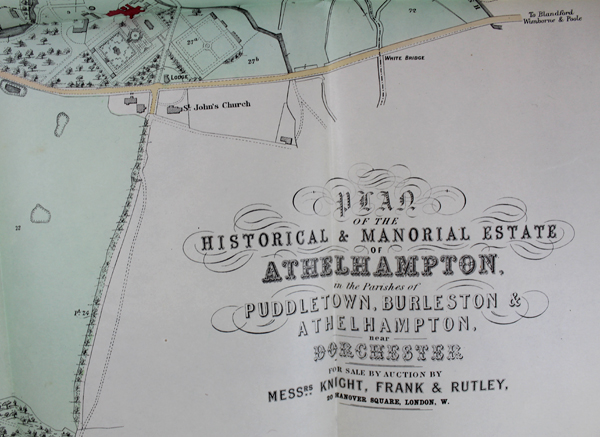 72
To Blandford
Wimborne & Poole
27ª
27ᵇ
WHITE BRIDGE
LODGE
St. John's Church
PLAN
OF THE
HISTORICAL & MANORIAL ESTATE
OF
ATHELHAMPTON,
in the Parishes of
PUDDLETOWN, BURLESTON &
ATHELHAMPTON,
near
DORCHESTER
FOR SALE BY AUCTION BY
MESSRS KNIGHT, FRANK & RUTLEY,
20 HANOVER SQUARE, LONDON, W.